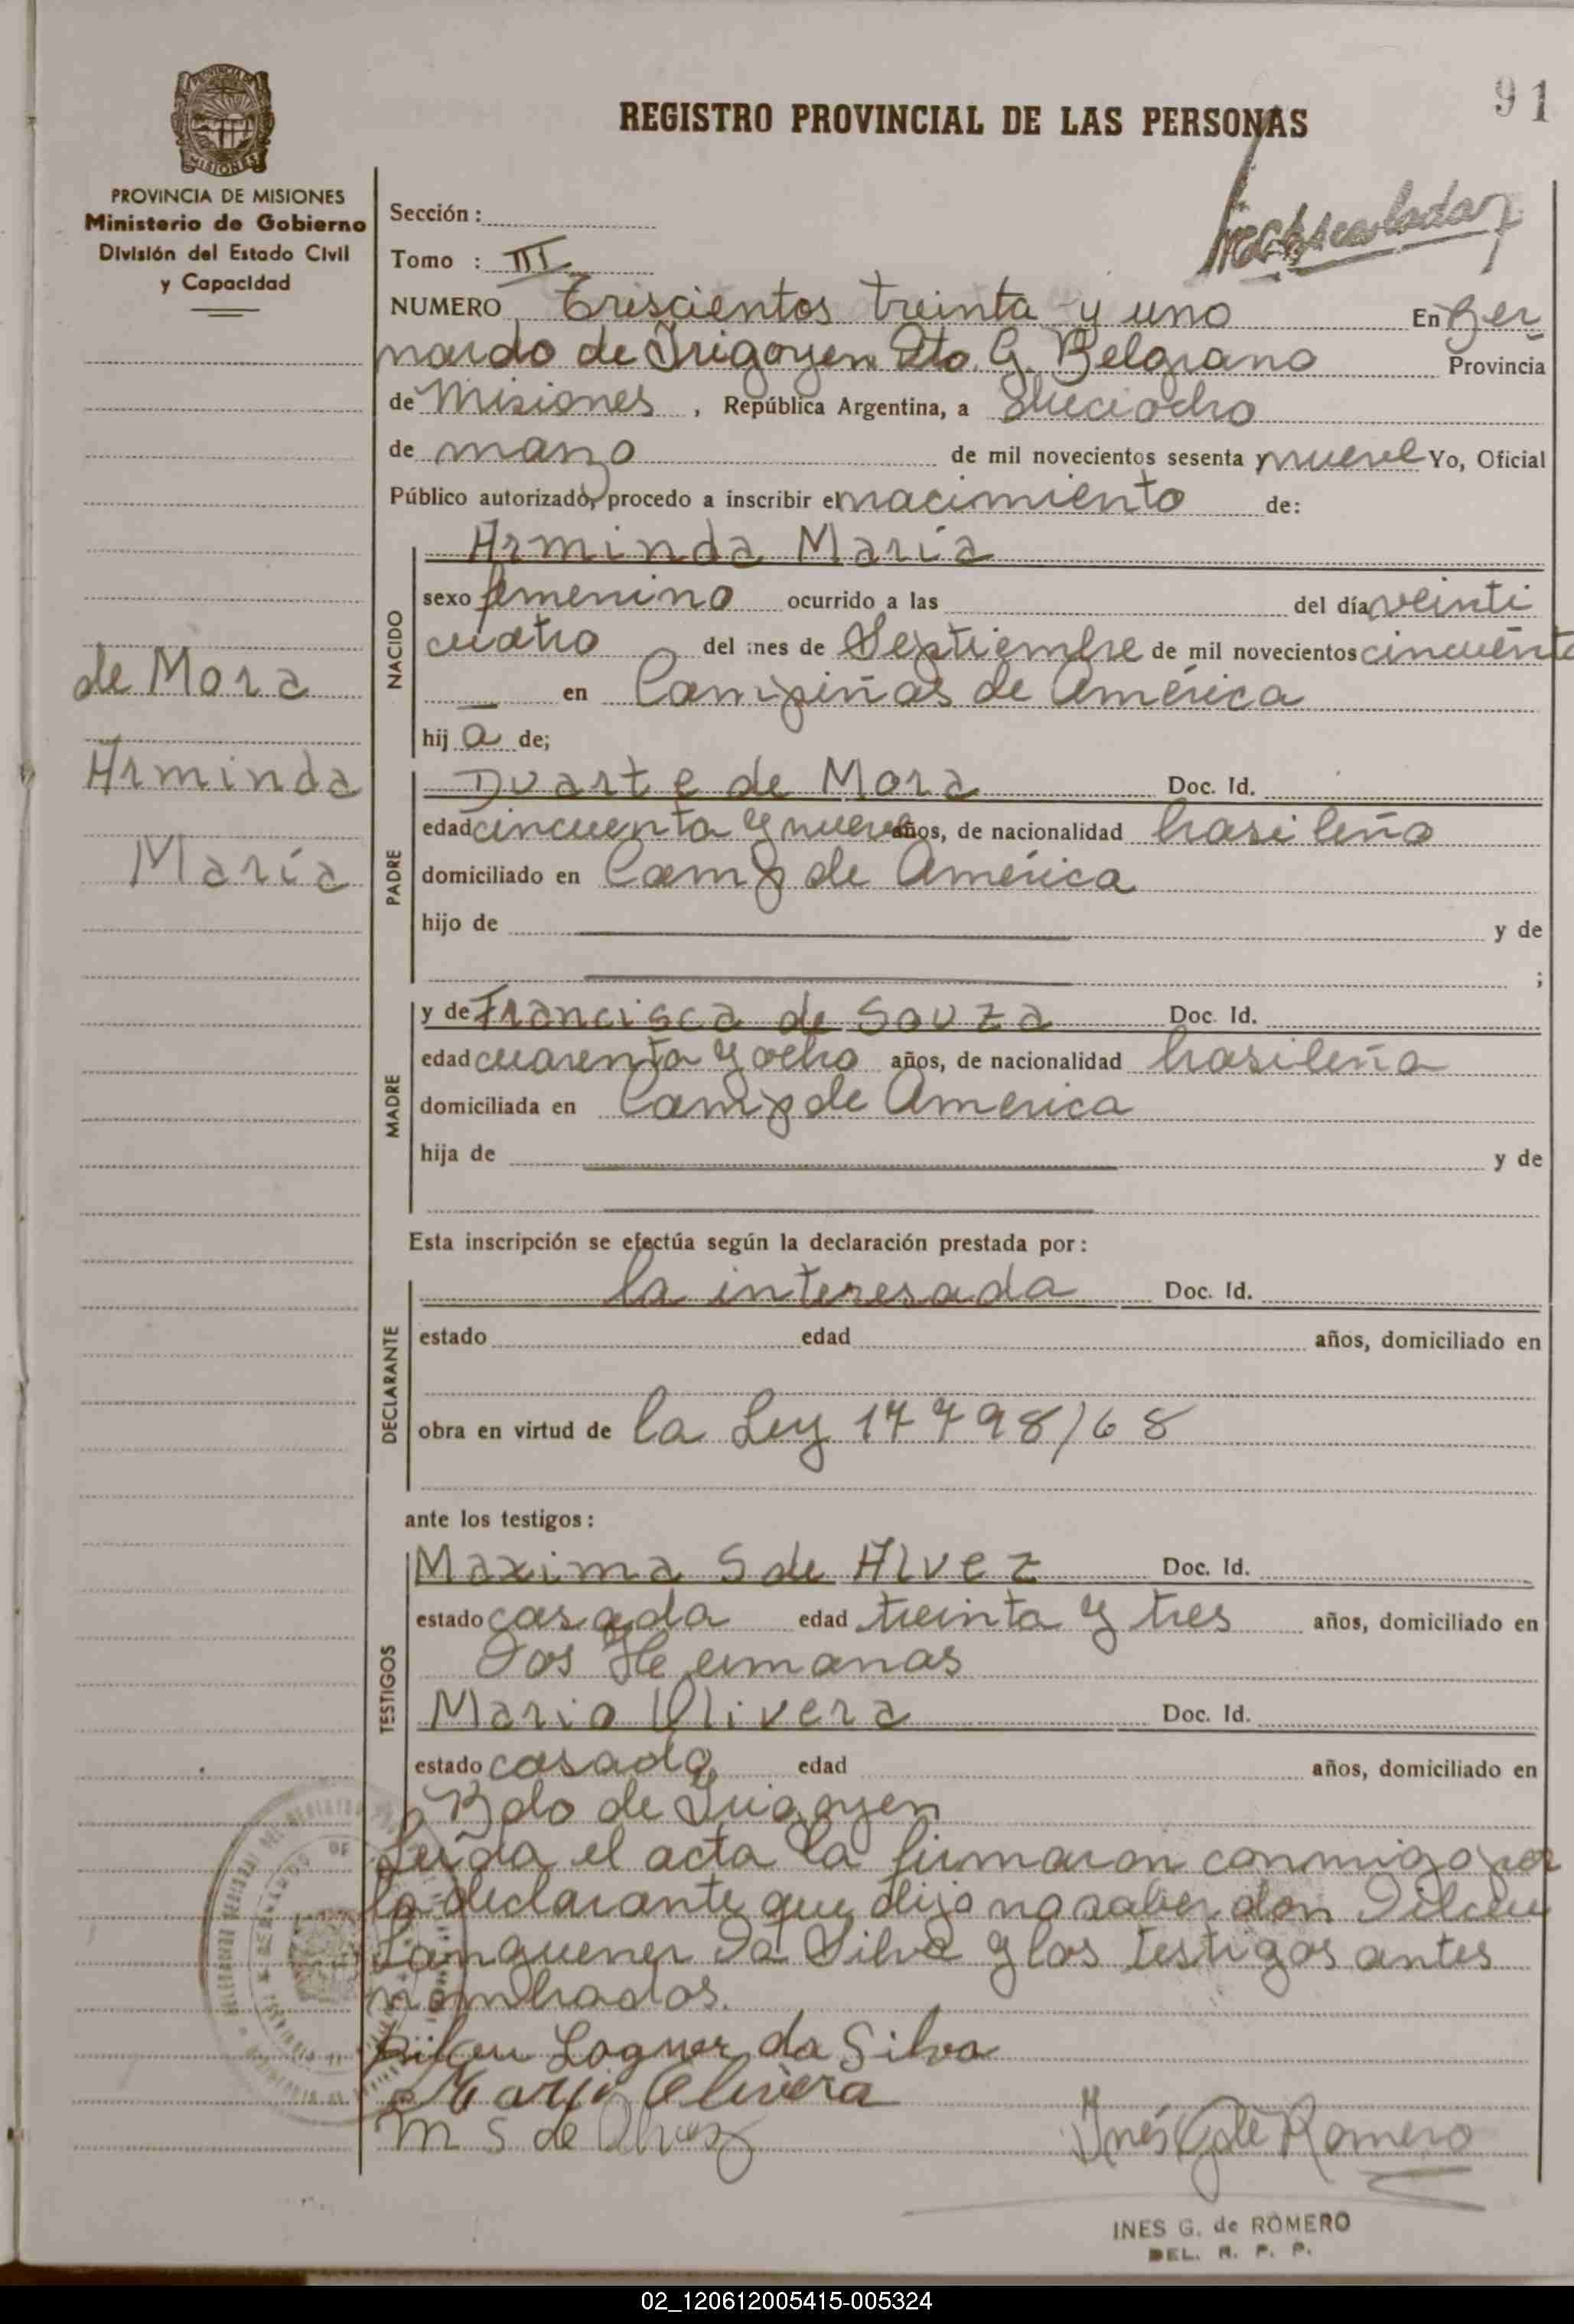 91
REGISTRO PROVINCIAL DE LAS PERSONAS
PROVINCIA DE MISIONES
Ministerio de Gobierno
División del Estado Civil
y Capacidad
Sección:
Tomo : III
NUMERO Trescientos treinta y uno En Ber
nardo de Irigoyen Dto. G. Belgrano Provincia
de Misiones, República Argentina, a dieciocho
de marzo de mil novecientos sesenta y nueve Yo, Oficial
Público autorizado, procedo a inscribir el nacimiento de:
de Mora
Arminda
María
NACIDO
Arminda María
sexo femenino ocurrido a las del día veinti
cuatro del mes de Septiembre de mil novecientos cincuenta
— en Campiñas de América
hij a de;
PADRE
Duarte de Mora Doc. Id.
edad cincuenta y nueve años, de nacionalidad brasileño
domiciliado en Camp de América
hijo de y de
;
MADRE
y de Francisca de Souza Doc. Id.
edad cuarenta y ocho años, de nacionalidad brasileña
domiciliada en Camp de America
hija de y de
Esta inscripción se efectúa según la declaración prestada por:
DECLARANTE
la interesada Doc. Id.
estado edad años, domiciliado en
obra en virtud de la Ley 17798/68
ante los testigos:
TESTIGOS
Maxima S de Alvez Doc. Id.
estado casada edad treinta y tres años, domiciliado en
Dos Hermanas
Mario Olivera Doc. Id.
estado casado edad años, domiciliado en
Bdo de Irigoyen
Leida el acta la firmaron conmigo por
la declarante que dijo no saber don Dilceu
Languener Da Silva y los testigos antes
nombrados.
Dilceu Lagner da Silva
Mario Olivera
M S de Alvez
Inés G de Romero
INES G. de ROMERO
DEL. R. P. P.
02_120612005415-005324